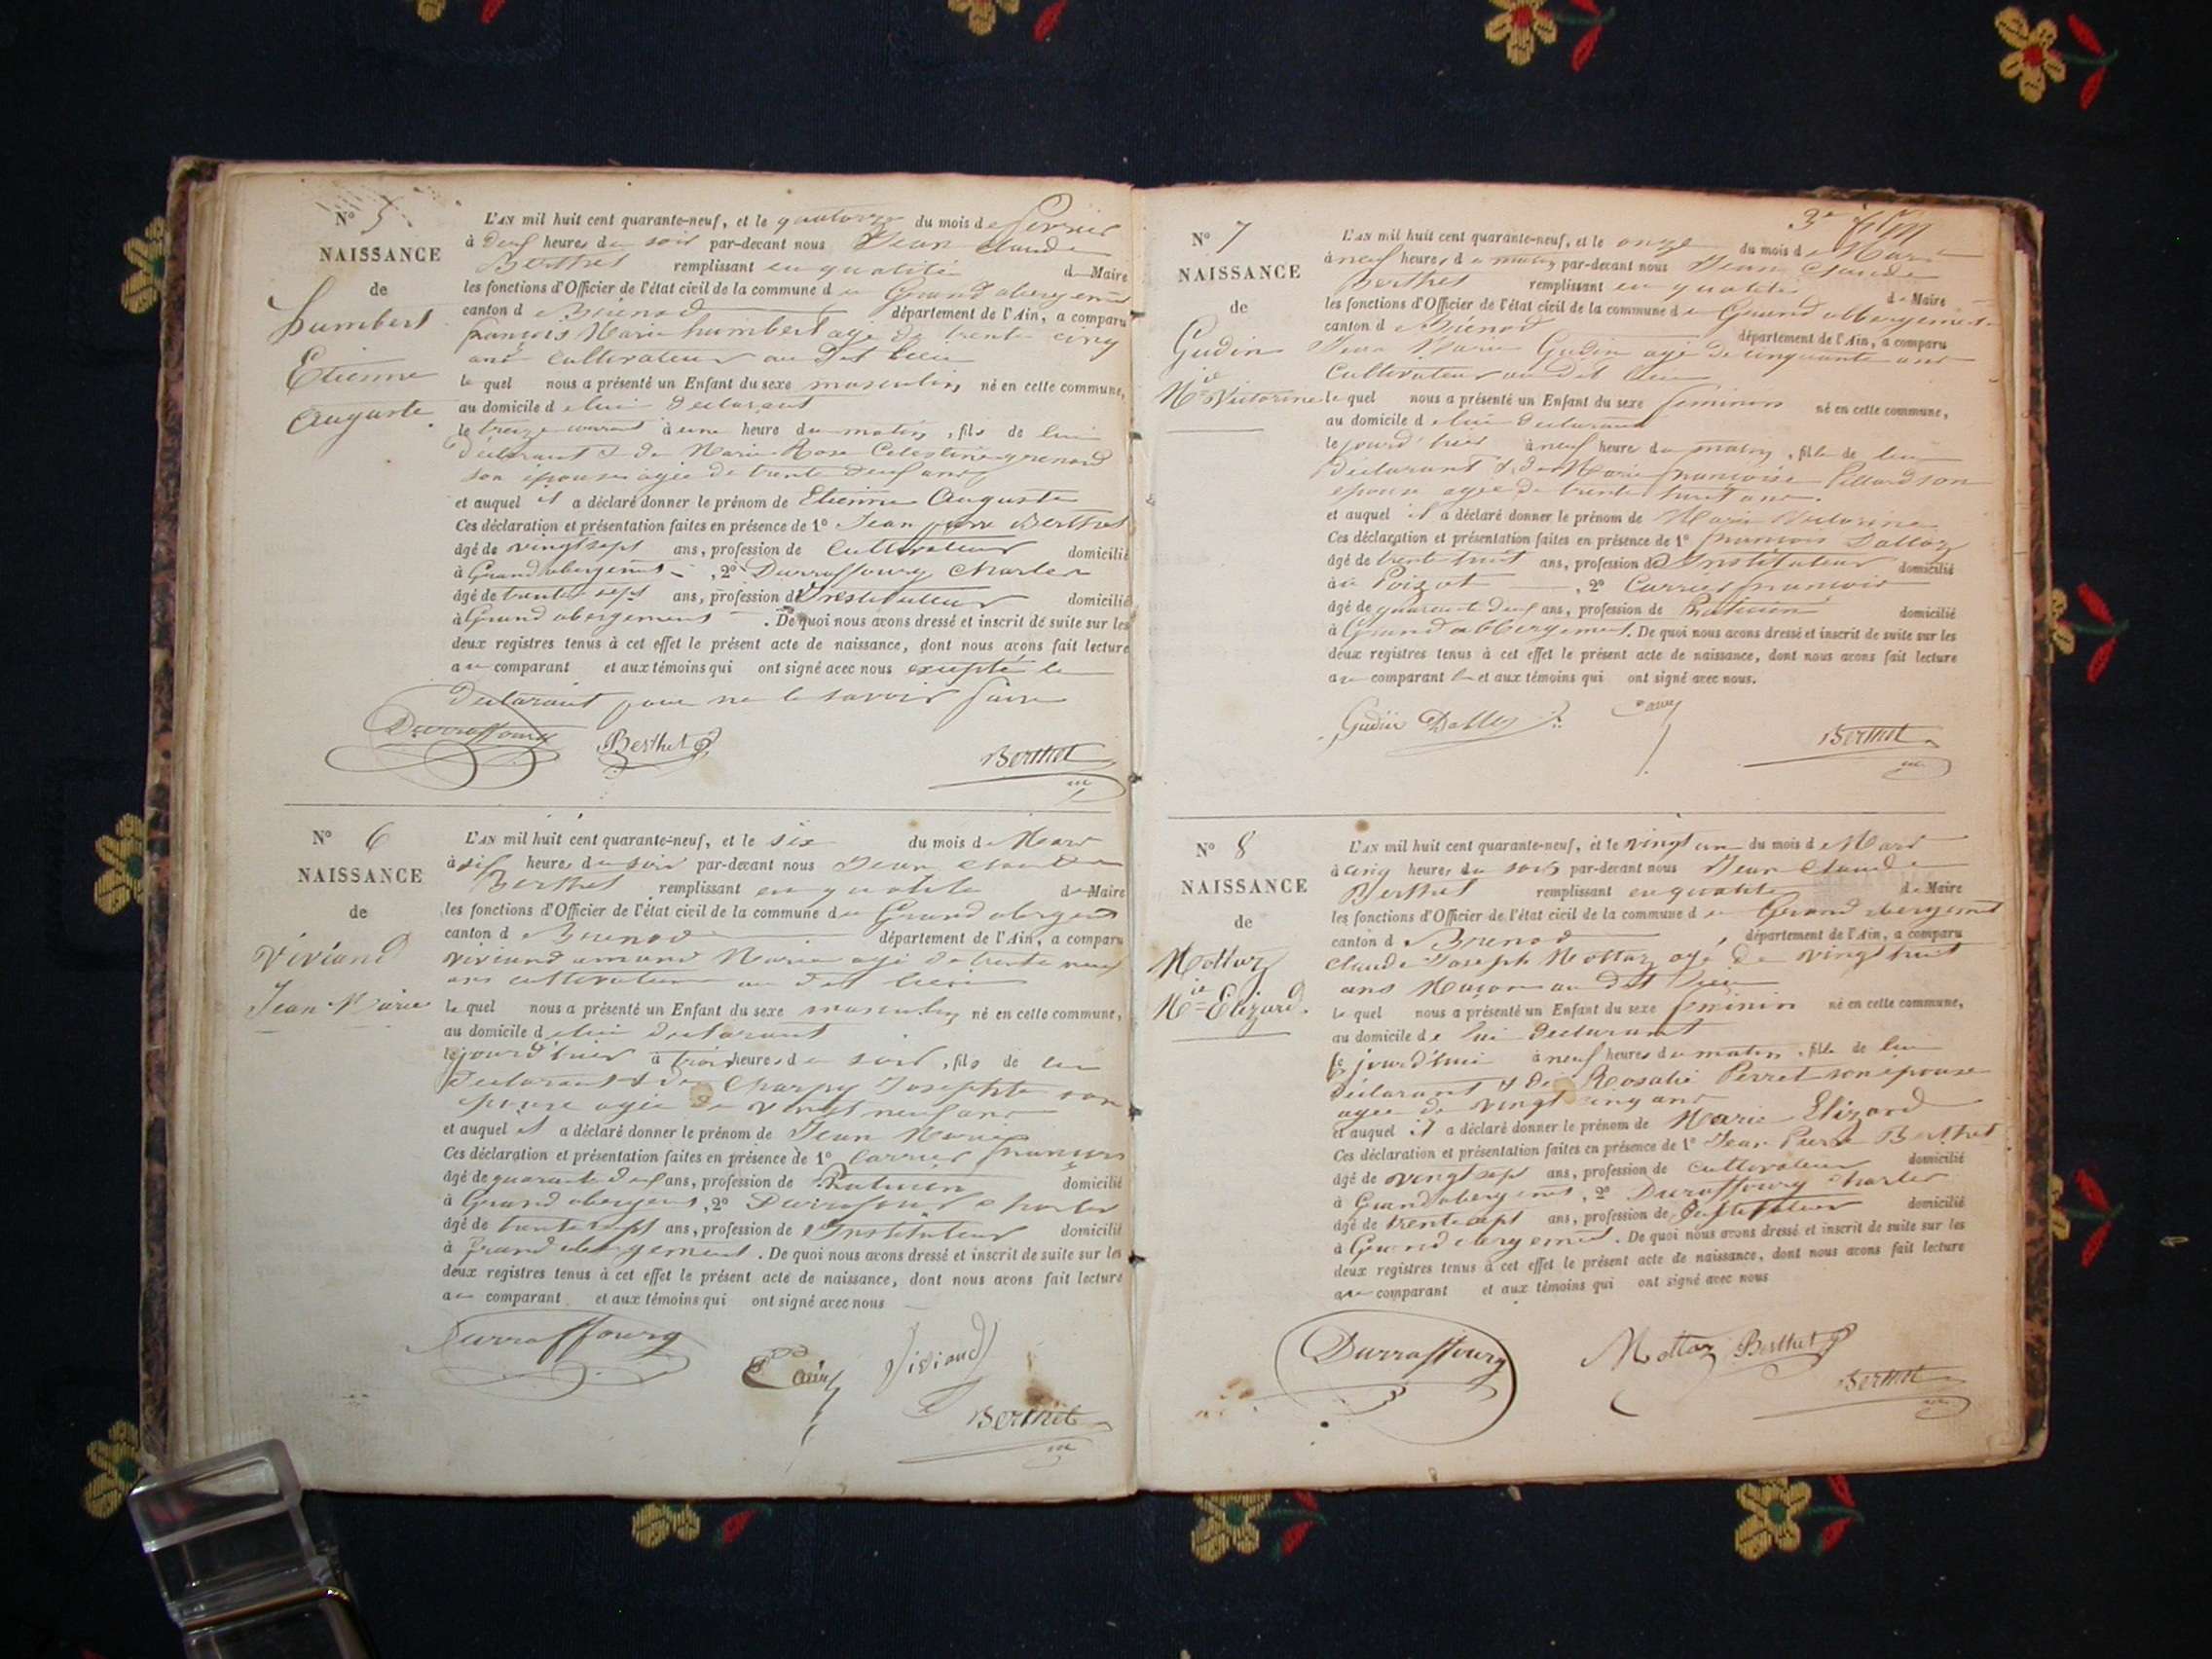 N° 5
NAISSANCE
de
humbert
Etienne
Auguste.
L'AN mil huit cent quarante-neuf, et le quatorze du mois de fevrier
à deux heures du soir par-devant nous Jean Claude
Berthet remplissant en qualité de Maire
les fonctions d'Officier de l'état civil de la commune de Grand abergement
canton de Brénod département de l'Ain, a comparu
françois Marie humbert agé de trente cinq
ans cultivateur au dit lieu
lequel nous a présenté un Enfant du sexe masculin, né en cette commune,
au domicile de lui declarant
le treize courant à une heure du matin, fils de lui
déclarant & de Marie Rose Celestine grenard
son épouse agée de trente deux ans
et auquel il a déclaré donner le prénom de Etienne Auguste
Ces déclaration et présentation faites en présence de 1° Jean pierre Berthet
âgé de vingt sept ans, profession de Cultivateur domicilié
à Grand abergement, 2° Durraffourg Charles
âgé de trente sept ans, profession d'Instituteur domicilié
à Grand abergement. De quoi nous avons dressé et inscrit de suite sur les
deux registres tenus à cet effet le présent acte de naissance, dont nous avons fait lecture
au comparant et aux témoins qui ont signé avec nous excepté le
declarant pour ne le savoir faire
Durraffourg Berthet
Berthet
N° 6
NAISSANCE
de
Viviand
Jean Marie
L'AN mil huit cent quarante-neuf, et le six du mois de Mars
à six heures du soir par-devant nous Jean Claude
Berthet remplissant en qualité de Maire
les fonctions d'Officier de l'état civil de la commune de Grand abergement
canton de Brenod département de l'Ain, a comparu
Viviand amand Marie agé de trente neuf
ans cultivateur au dit lieu
lequel nous a présenté un Enfant du sexe masculin né en cette commune,
au domicile de lui declarant
le jourd'hui à trois heures du soir, fils de lui
declarant & de Charpy Josephte son
épouse agée de vingt neuf ans
et auquel il a déclaré donner le prénom de Jean Marie
Ces déclaration et présentation faites en présence de 1° Carrier françois
âgé de quarante deux ans, profession de Praticien domicilié
à Grand abergement, 2° Durraffourg Charles
âgé de trente sept ans, profession d'Instituteur domicilié
à Grand abergement. De quoi nous avons dressé et inscrit de suite sur les
deux registres tenus à cet effet le présent acte de naissance, dont nous avons fait lecture
au comparant et aux témoins qui ont signé avec nous
Durraffourg
Viviand
Berthet
3e
N° 7
NAISSANCE
de
Gudin
Mie Victorine
L'AN mil huit cent quarante-neuf, et le onze du mois de Mars
à neuf heures du matin par-devant nous Jean Claude
Berthet remplissant en qualité de Maire
les fonctions d'Officier de l'état civil de la commune de Grand abbergement
canton de Brénod département de l'Ain, a comparu
Jean Marie Gudin agé de cinquante ans
Cultivateur au dit lieu
lequel nous a présenté un Enfant du sexe feminin né en cette commune,
au domicile de lui declarant
le jourd'hui à neuf heure du matin, fille de lui
declarant & de Marie françoise Pillard son
epouse agée de trente huit ans.
et auquel il a déclaré donner le prénom de Marie Victorine
Ces déclaration et présentation faites en présence de 1° françois Dalloz
âgé de trente huit ans, profession d'Instituteur domicilié
à au Poizat, 2° Carrier françois
âgé de quarante deux ans, profession de Praticien domicilié
à Grand abbergement. De quoi nous avons dressé et inscrit de suite sur les
deux registres tenus à cet effet le présent acte de naissance, dont nous avons fait lecture
au comparant et aux témoins qui ont signé avec nous.
Gudin Dalloz
Berthet
N° 8
NAISSANCE
de
Mottaz
Mie Elizard.
L'AN mil huit cent quarante-neuf, et le vingt un du mois de Mars
à cinq heures du soir par-devant nous Jean Claude
Berthet remplissant en qualité de Maire
les fonctions d'Officier de l'état civil de la commune de Grand abergement
canton de Brenod département de l'Ain, a comparu
Claude Joseph Mottaz agé de vingt huit
ans Maçon au dit lieu
lequel nous a présenté un Enfant du sexe feminin né en cette commune,
au domicile de lui declarant
le jourd'hui à neuf heures du matin, fille de lui
déclarant & de Rosalie Perret son épouse
agée de vingt cinq ans
et auquel il a déclaré donner le prénom de Marie Elizard
Ces déclaration et présentation faites en présence de 1° Jean Pierre Berthet
âgé de vingt sept ans, profession de Cultivateur domicilié
à Grand abergement, 2° Durraffourg Charles
âgé de trente sept ans, profession de Instituteur domicilié
à Grand abergement. De quoi nous avons dressé et inscrit de suite sur les
deux registres tenus à cet effet le présent acte de naissance, dont nous avons fait lecture
au comparant et aux témoins qui ont signé avec nous
Durraffourg Mottaz Berthet
Berthet